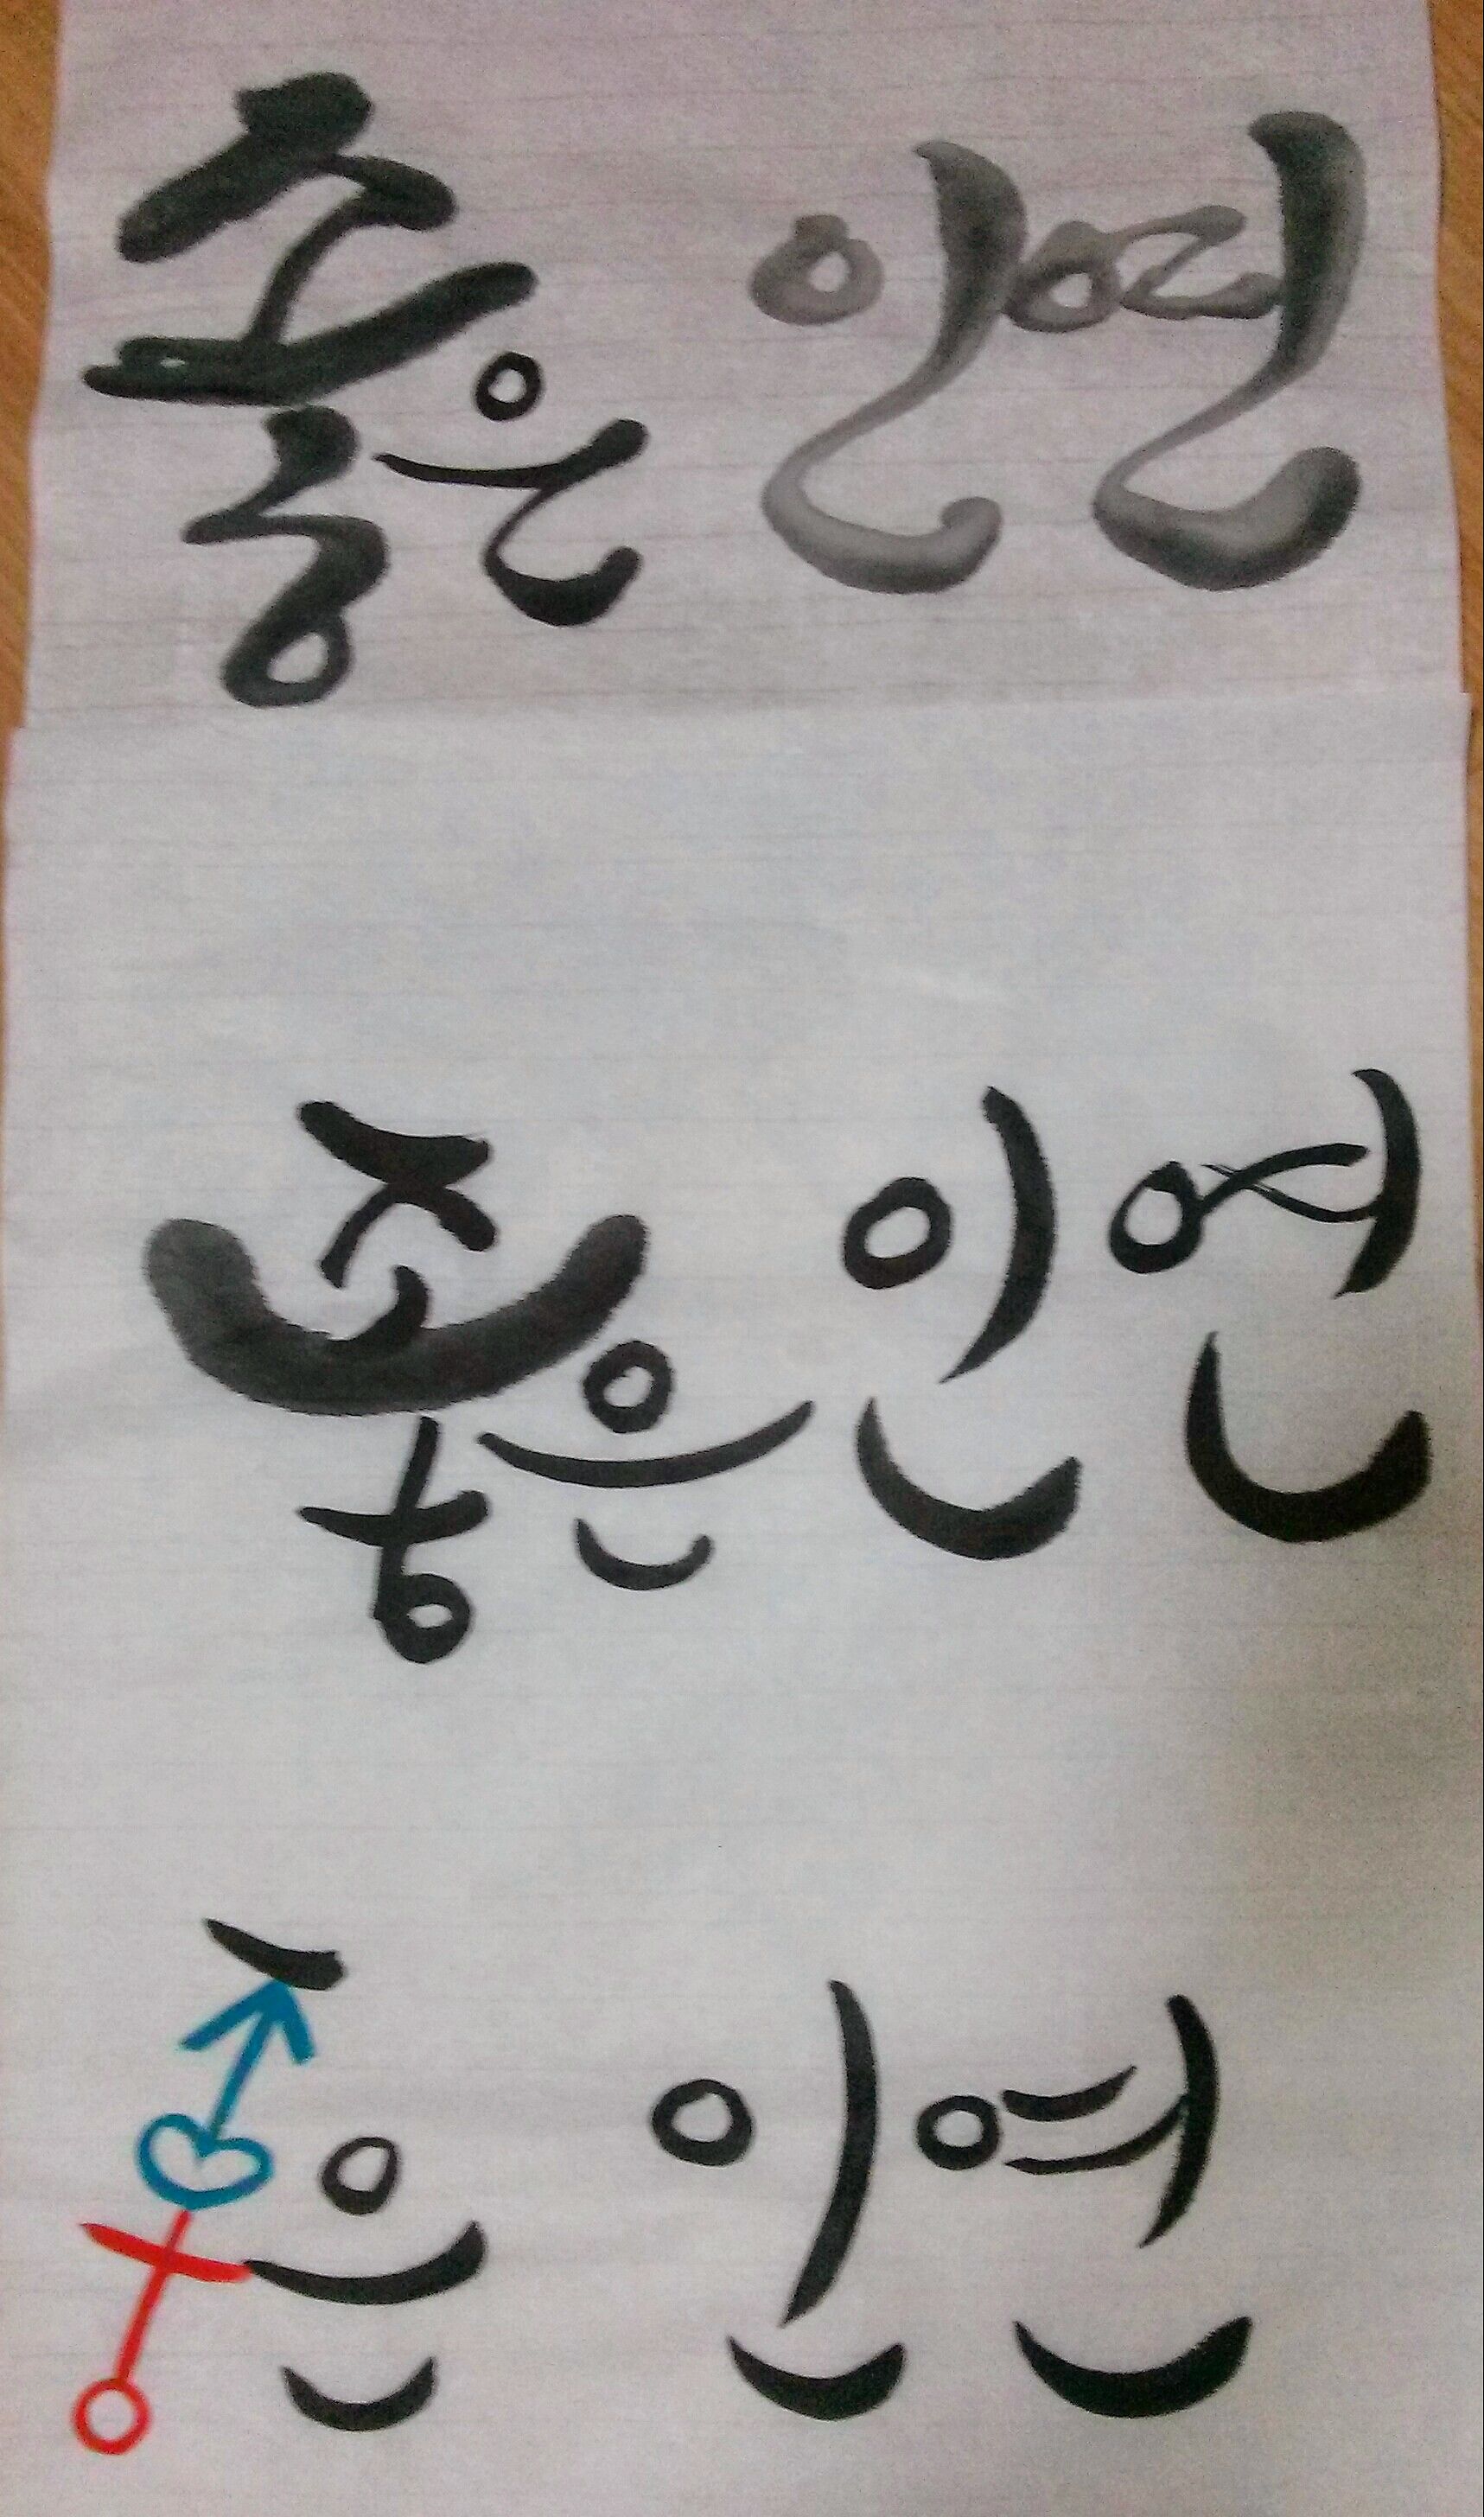 좋은 인연
좋은 인연
좋은 인연